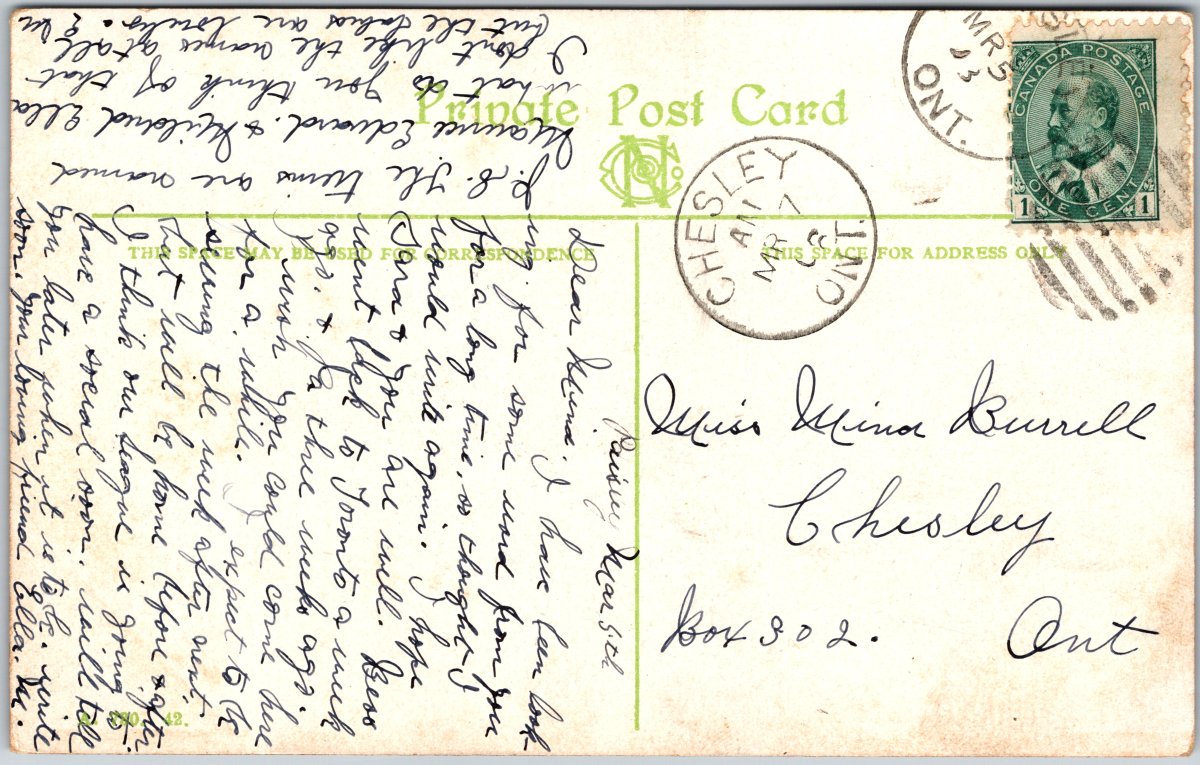 Private Post Card
THIS SPACE MAY BE USED FOR CORRESPONDENCE
THIS SPACE FOR ADDRESS ONLY
CANADA POSTAGE
ONE CENT
1 1
MR 5
ONT.
CHESLEY
AM
MR 7
08
ONT.
Miss Mina Burrell
Chesley
Box 302.
Ont
Paisley Mar 5th
Dear Mina. I have been look
ing for some word from you
for a long time, so thought I
would write again. I hope
Dora & you are well. Bess
went back to Toronto a week
ago. & Pa three weeks ago.
I wish you could come here
for a while. expect to be
sewing the week after next.
but will be home before & after.
I think our league is going to
have a social soon. will tell
you later when it is to be. write
soon. Your loving friend Ella. Mc.
P.S. The twins are named
Maurice Edward. & Mildred Ella
what do you think of that
I don't like the names at all
but the babies are lovely.
A. 42.